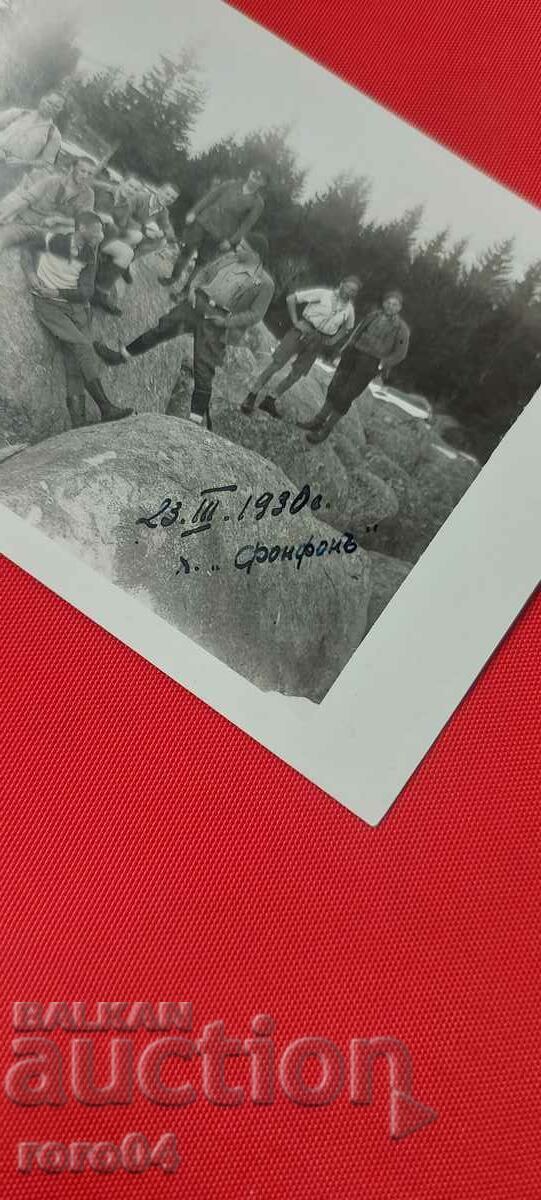 23.III.1930г.
х. „Фонфонъ"
BALKAN
auction
roro04